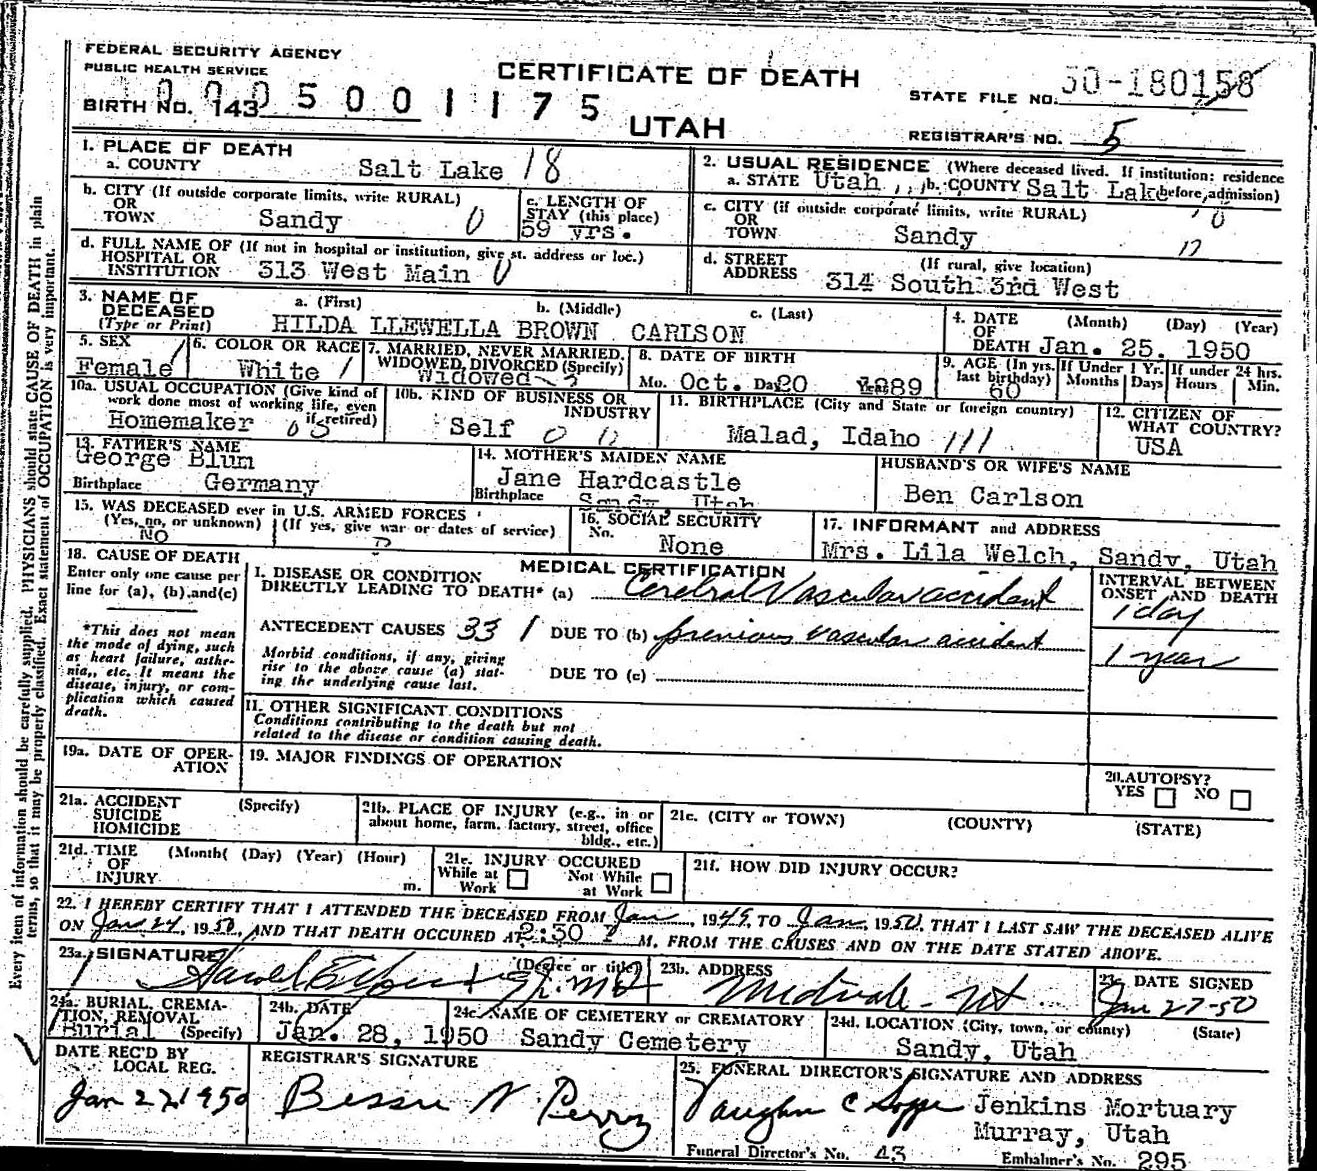 FEDERAL SECURITY AGENCY
PUBLIC HEALTH SERVICE
CERTIFICATE OF DEATH
STATE FILE NO. 50-180158
BIRTH NO. 143
0005001175
UTAH
REGISTRAR'S NO. 5
1. PLACE OF DEATH
a. COUNTY Salt Lake 18
2. USUAL RESIDENCE (Where deceased lived. If institution: residence before admission)
a. STATE Utah b. COUNTY Salt Lake
b. CITY (If outside corporate limits, write RURAL)
OR
TOWN Sandy 0
c. LENGTH OF
STAY (this place)
59 yrs.
c. CITY (if outside corporate limits, write RURAL)
OR
TOWN Sandy
d. FULL NAME OF (If not in hospital or institution, give st. address or loc.)
HOSPITAL OR
INSTITUTION 313 West Main
d. STREET (If rural, give location)
ADDRESS 314 South 3rd West
3. NAME OF
DECEASED
(Type or Print)
a. (First) b. (Middle) c. (Last)
HILDA LLEWELLA BROWN CARLSON
4. DATE (Month) (Day) (Year)
OF
DEATH Jan. 25. 1950
5. SEX
Female
6. COLOR OR RACE
White
7. MARRIED, NEVER MARRIED,
WIDOWED, DIVORCED (Specify)
Widowed
8. DATE OF BIRTH
Mo. Oct. Day 20 1889
9. AGE (In yrs. last birthday) 60
If Under 1 Yr. Months Days
If under 24 hrs. Hours Min.
10a. USUAL OCCUPATION (Give kind of
work done most of working life, even
if retired)
Homemaker
10b. KIND OF BUSINESS OR
INDUSTRY
Self
11. BIRTHPLACE (City and State or foreign country)
Malad, Idaho
12. CITIZEN OF
WHAT COUNTRY?
USA
13. FATHER'S NAME
George Blum
Birthplace Germany
14. MOTHER'S MAIDEN NAME
Jane Hardcastle
Birthplace Sandy, Utah
HUSBAND'S OR WIFE'S NAME
Ben Carlson
15. WAS DECEASED ever in U.S. ARMED FORCES
(Yes, no, or unknown) (If yes, give war or dates of service)
NO
16. SOCIAL SECURITY
No.
None
17. INFORMANT and ADDRESS
Mrs. Lila Welch, Sandy, Utah
18. CAUSE OF DEATH
Enter only one cause per
line for (a), (b) and (c)
*This does not mean
the mode of dying, such
as heart failure, asthe-
nia,, etc. It means the
disease, injury, or com-
plication which caused
death.
MEDICAL CERTIFICATION
I. DISEASE OR CONDITION
DIRECTLY LEADING TO DEATH* (a) Cerebral Vascular accident
INTERVAL BETWEEN
ONSET AND DEATH
1 day
ANTECEDENT CAUSES 331 DUE TO (b) previous vascular accident
1 year
Morbid conditions, if any, giving
rise to the above cause (a) stat-
ing the underlying cause last.
DUE TO (c)
II. OTHER SIGNIFICANT CONDITIONS
Conditions contributing to the death but not
related to the disease or condition causing death.
19a. DATE OF OPER-
ATION
19. MAJOR FINDINGS OF OPERATION
20. AUTOPSY?
YES NO
21a. ACCIDENT (Specify)
SUICIDE
HOMICIDE
21b. PLACE OF INJURY (e.g., in or
about home, farm, factory, street, office
bldg., etc.)
21c. (CITY or TOWN) (COUNTY) (STATE)
21d. TIME (Month( (Day) (Year) (Hour)
OF
INJURY m.
21e. INJURY OCCURED
While at Work Not While at Work
21f. HOW DID INJURY OCCUR?
22. I HEREBY CERTIFY THAT I ATTENDED THE DECEASED FROM Jan, 1949, TO Jan, 1950, THAT I LAST SAW THE DECEASED ALIVE
ON Jan 24, 1950, AND THAT DEATH OCCURED AT 2:30 P M, FROM THE CAUSES AND ON THE DATE STATED ABOVE.
23a. SIGNATURE (Degree or title)
Jr. MD
23b. ADDRESS
Midvale - Ut
23c DATE SIGNED
Jan 27-50
24a. BURIAL, CREMA-
TION, REMOVAL
Burial (Specify)
24b. DATE
Jan. 28, 1950
24c. NAME OF CEMETERY or CREMATORY
Sandy Cemetery
24d. LOCATION (City, town, or county) (State)
Sandy, Utah
DATE REC'D BY
LOCAL REG.
Jan 27, 1950
REGISTRAR'S SIGNATURE
Bessie N. Perry
25. FUNERAL DIRECTOR'S SIGNATURE AND ADDRESS
Vaughn C Jenkins Mortuary
Murray, Utah
Funeral Director's No. 43 Embalmer's No. 295
Every item of information should be carefully supplied. PHYSICIANS should state CAUSE OF DEATH in plain
terms, so that it may be properly classified. Exact statement of OCCUPATION is very important.